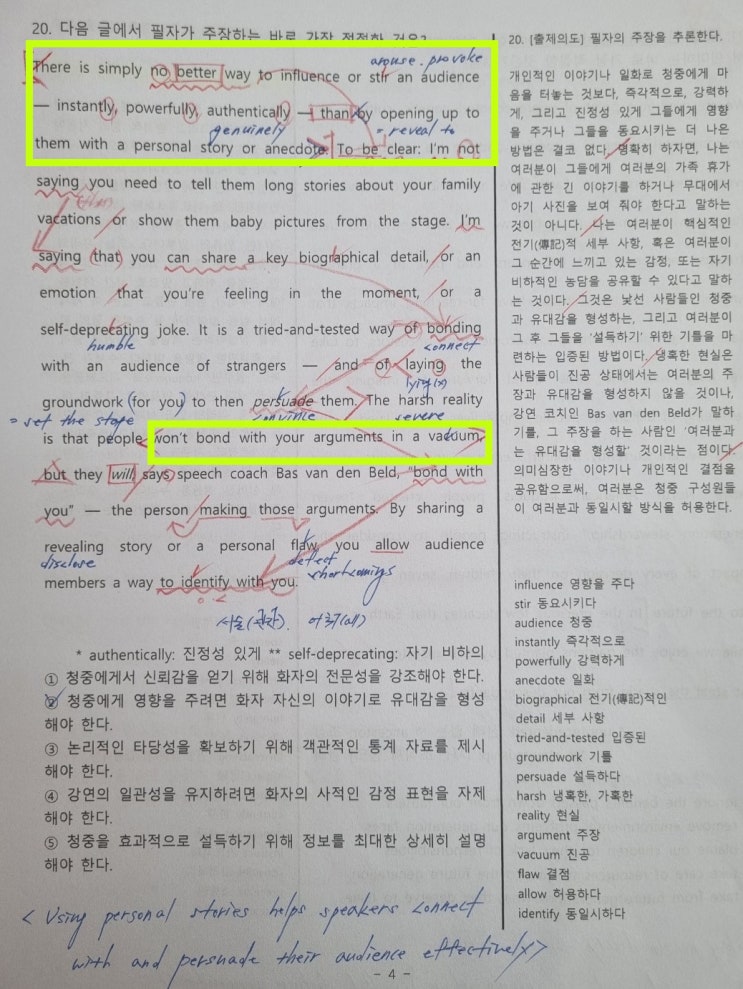 20. 다음 글에서 필자가 주장하는 바로 가장 적절한 것은?
arouse. provoke
There is simply no better way to influence or stir an audience
— instantly, powerfully, authentically — than by opening up to
genuinely = reveal to
them with a personal story or anecdote. To be clear: I'm not
saying you need to tell them long stories about your family
vacations or show them baby pictures from the stage. I'm
saying (that) you can share a key biographical detail, or an
emotion that you're feeling in the moment, or a
self-deprecating joke. It is a tried-and-tested way of bonding
humble connect
with an audience of strangers — and of laying the
lying(x)
groundwork (for you) to then persuade them. The harsh reality
= set the stage convince severe
is that people won't bond with your arguments in a vacuum,
but they will, says speech coach Bas van den Beld, "bond with
you" — the person making those arguments. By sharing a
revealing story or a personal flaw, you allow audience
disclose defect
shortcomings
members a way to identify with you.
* authentically: 진정성 있게 ** self-deprecating: 자기 비하의
① 청중에게서 신뢰감을 얻기 위해 화자의 전문성을 강조해야 한다.
② 청중에게 영향을 주려면 화자 자신의 이야기로 유대감을 형성
해야 한다.
③ 논리적인 타당성을 확보하기 위해 객관적인 통계 자료를 제시
해야 한다.
④ 강연의 일관성을 유지하려면 화자의 사적인 감정 표현을 자제
해야 한다.
⑤ 청중을 효과적으로 설득하기 위해 정보를 최대한 상세히 설명
해야 한다.
< Using personal stories helps speakers connect
with and persuade their audience effectively>
- 4 -
20. [출제의도] 필자의 주장을 추론한다.
개인적인 이야기나 일화로 청중에게 마
음을 터놓는 것보다, 즉각적으로, 강력하
게, 그리고 진정성 있게 그들에게 영향
을 주거나 그들을 동요시키는 더 나은
방법은 결코 없다. 명확히 하자면, 나는
여러분이 그들에게 여러분의 가족 휴가
에 관한 긴 이야기를 하거나 무대에서
아기 사진을 보여 줘야 한다고 말하는
것이 아니다. 나는 여러분이 핵심적인
전기(傳記)적 세부 사항, 혹은 여러분이
그 순간에 느끼고 있는 감정, 또는 자기
비하적인 농담을 공유할 수 있다고 말하
는 것이다. 그것은 낯선 사람들인 청중
과 유대감을 형성하는, 그리고 여러분이
그 후 그들을 '설득하기' 위한 기틀을 마
련하는 입증된 방법이다. 냉혹한 현실은
사람들이 진공 상태에서는 여러분의 주
장과 유대감을 형성하지 않을 것이나,
강연 코치인 Bas van den Beld가 말하
기를, 그 주장을 하는 사람인 '여러분과
는 유대감을 형성할' 것이라는 점이다.
의미심장한 이야기나 개인적인 결점을
공유함으로써, 여러분은 청중 구성원들
이 여러분과 동일시할 방식을 허용한다.
influence 영향을 주다
stir 동요시키다
audience 청중
instantly 즉각적으로
powerfully 강력하게
anecdote 일화
biographical 전기(傳記)적인
detail 세부 사항
tried-and-tested 입증된
groundwork 기틀
persuade 설득하다
harsh 냉혹한, 가혹한
reality 현실
argument 주장
vacuum 진공
flaw 결점
allow 허용하다
identify 동일시하다